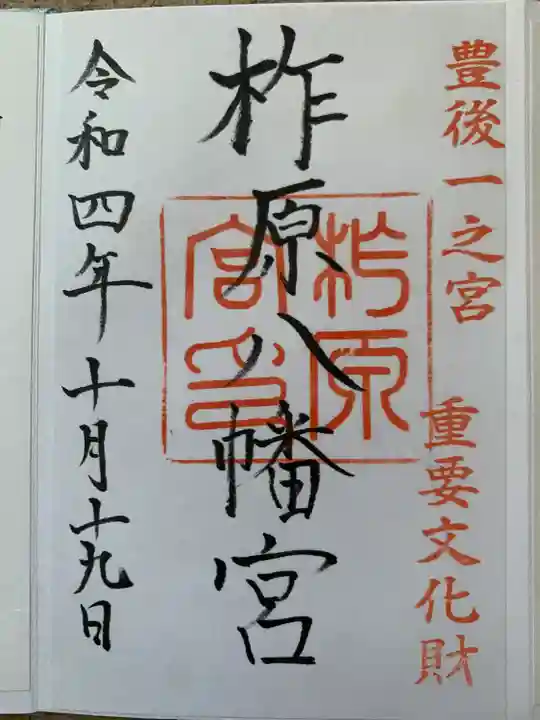 豊後一之宮
重要文化財
柞原八幡宮
柞原
宮印
令和四年十月十九日